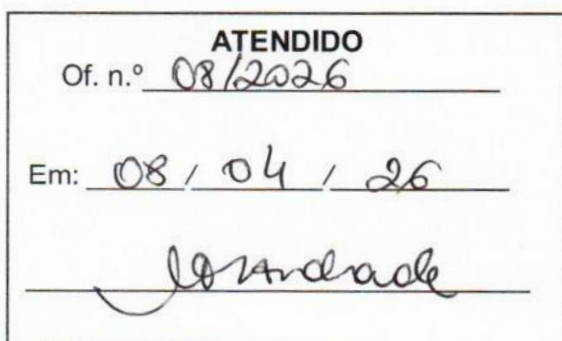 ATENDIDO
Of. n.º 08/2026
Em: 08 / 04 / 26